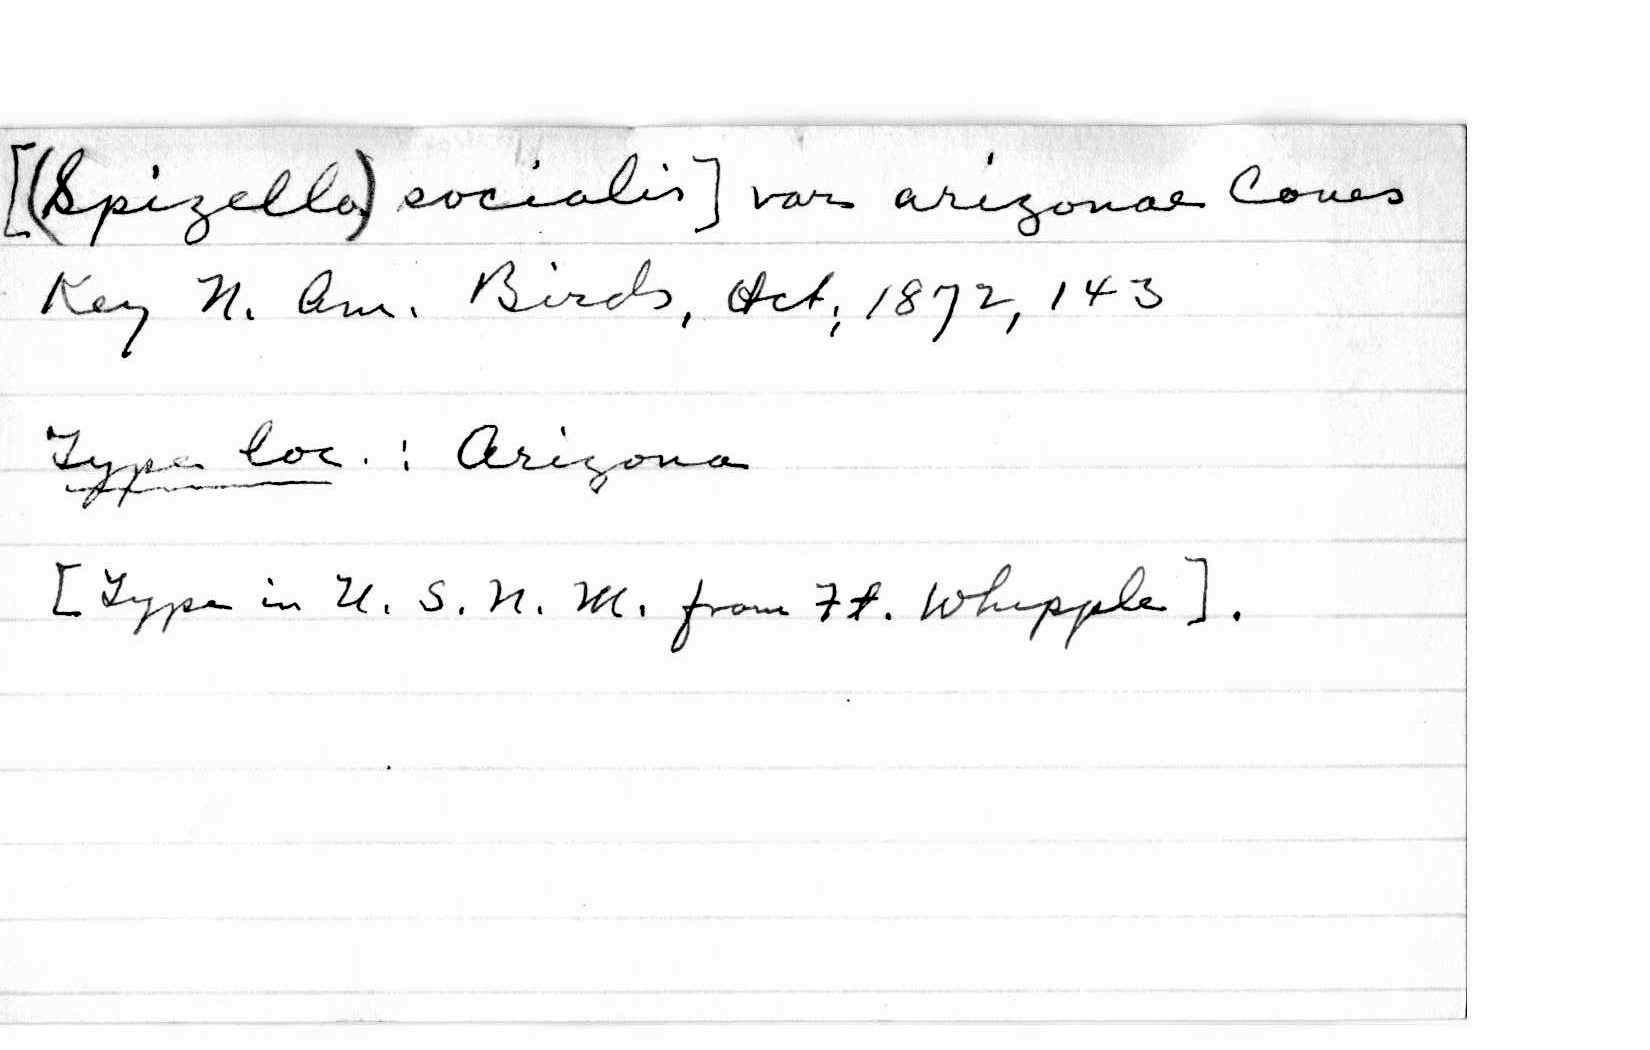 [(Spizella) socialis] var arizonae Coues
Key N. Am. Birds, Oct, 1872, 143
Type loc. : Arizona
[Type in U. S. N. M. from Ft. Whipple].